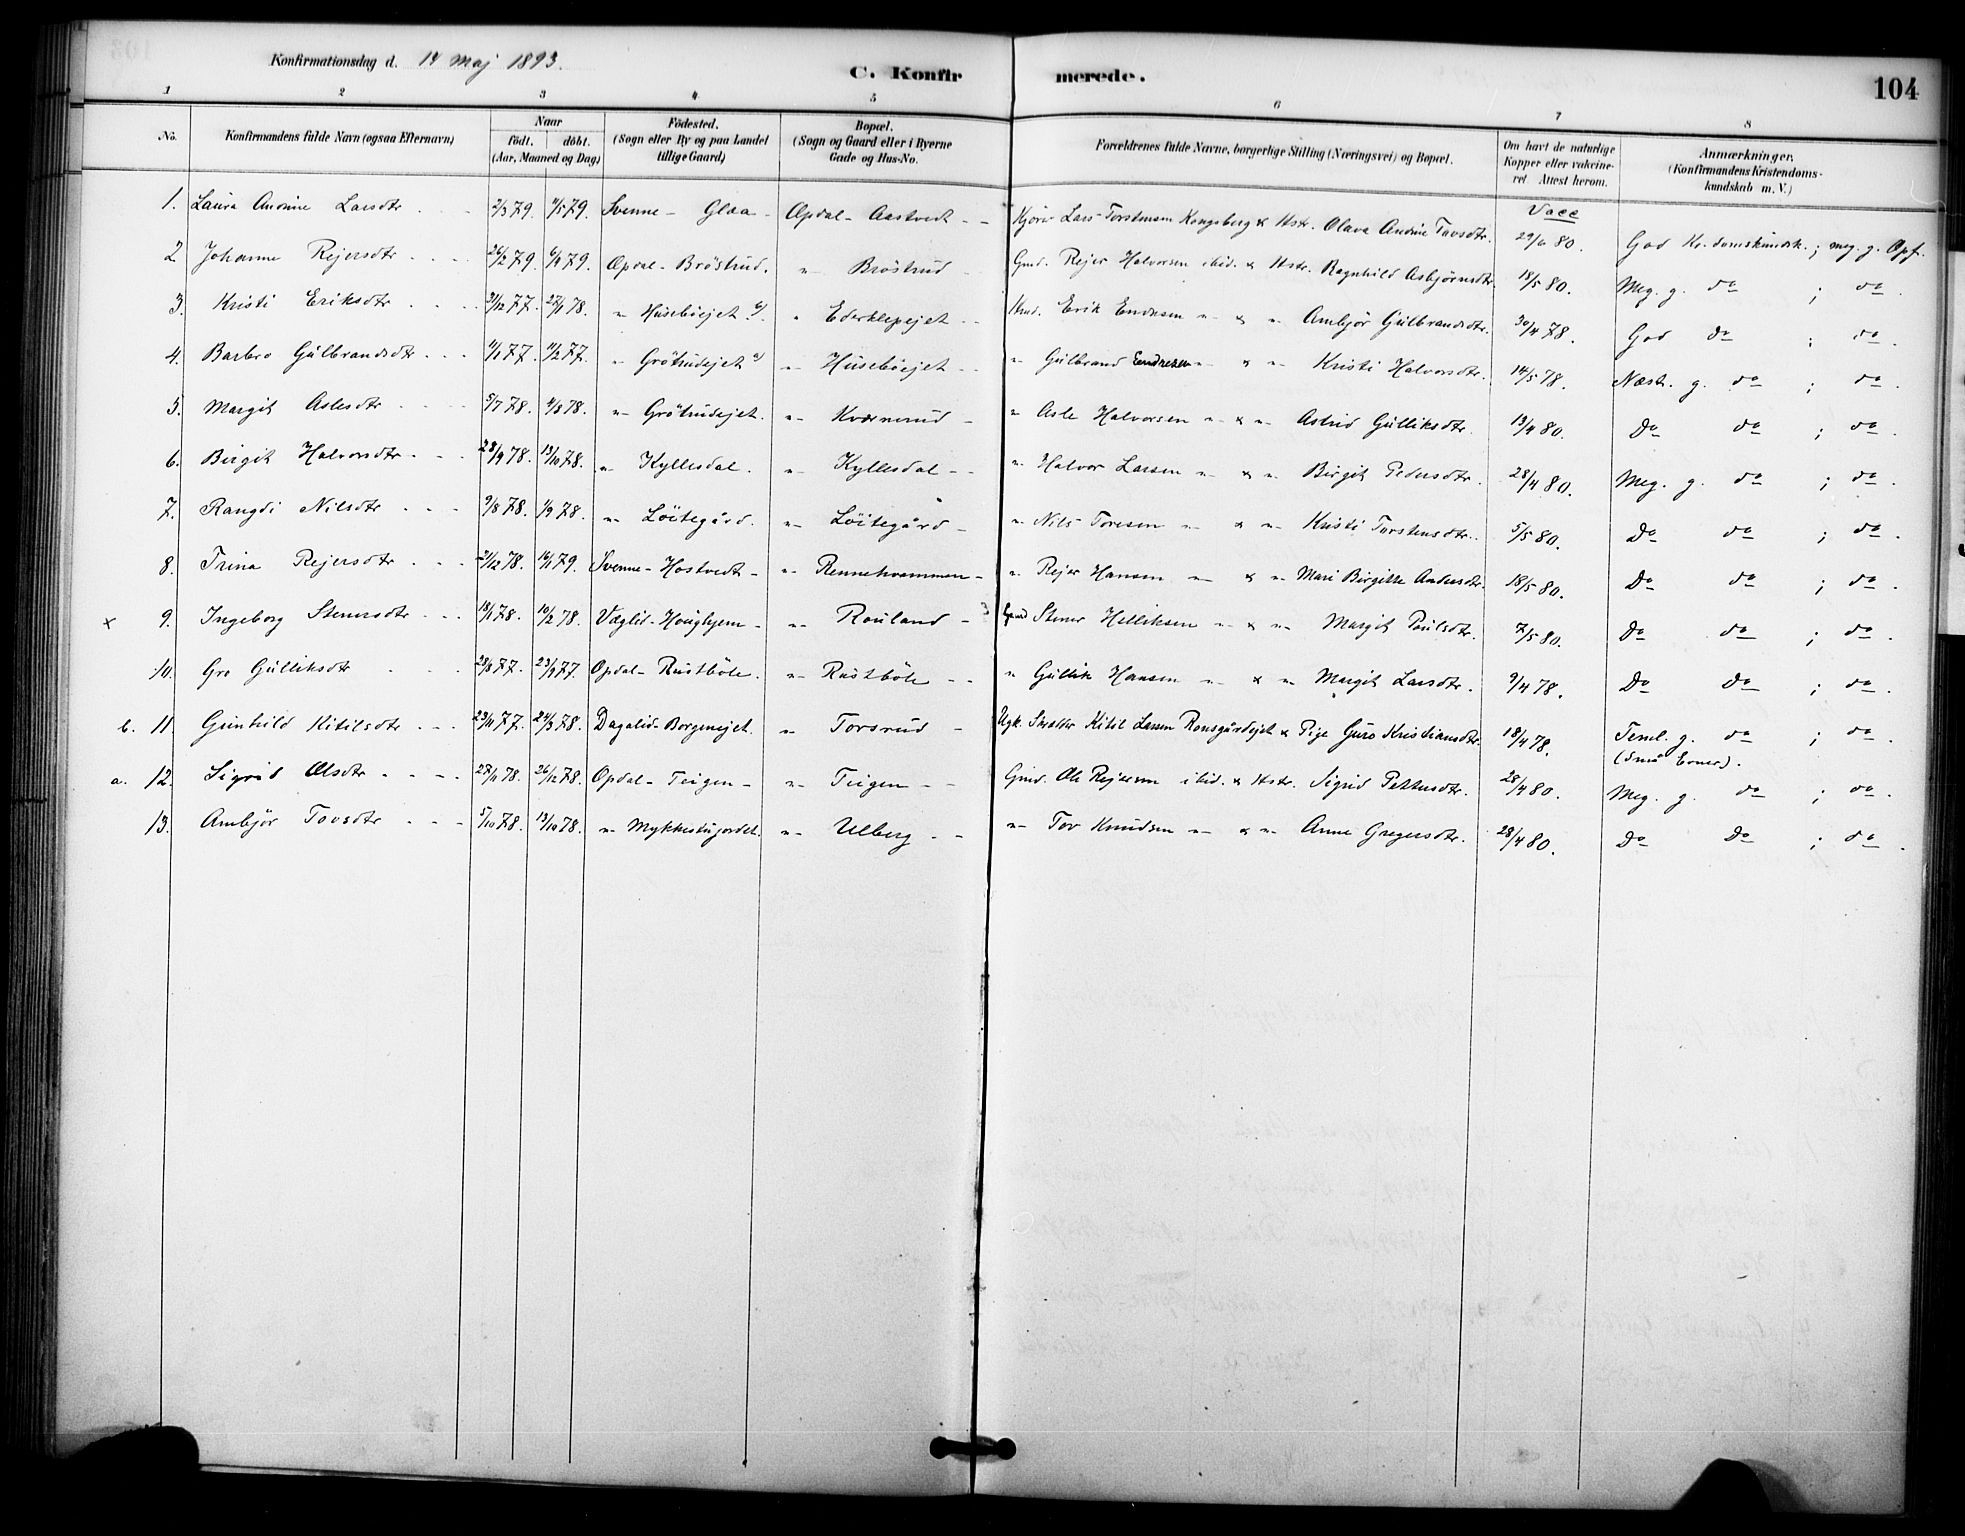 Konfirmationsdag d. 14 Maj 1893.
C. Konfir merede. 104
1 2 3 4 5 6 7 8
No. Konfirmandens fulde Navn (ogsaa Efternavn) Naar födt. döbt. (Aar, Maaned og Dag) Födested. (Sogn eller By og paa Landet tillige Gaard) Bopæl. (Sogn og Gaard eller i Byerne Gade og Hus-No. Forældrenes fulde Navne, borgerlige Stilling (Næringsvei) og Bopæl. Om havt de naturlige Kopper eller vakcineret Attest herom. Anmærkninger. (Konfirmandens Kristendomskundskab m. V.)
Vacc
1. Laura Andrine Larsdtr 2/3 79. 4/5 79. Svenne - Glaa - Opdal - Aastvedt - Kjörer Lars Torstensen Kongsberg & Hstr. Olava Andrine Tovsdtr. 29/6 80. God Kr.domskundsk.; meg. g. Opf.
2 Johanne Rejersdtr 26/2 79. 6/4 79. Opdal - Bröstrud. " Bröstrud Gmd. Rejer Halvorsen ibid. & Hstr. Ragnhild Asbjörnsdtr. 18/5 80. Meg. g. do ; do.
3. Kristi Eriksdtr 31/12 77. 27/1 78. " Huseböejet " Ederklepejet Erik " & " Ambjör Gulbrandsdtr. 30/4 78. God do ; do.
4. Barbro Gulbrandsdtr 77. 11/2 77. " Grötrudejet " Huseböejet " Gulbrand Endresen " & " Kristi Halvorsdtr. 14/5 78. Næst. g. do ; do.
5. Margit Aslesdtr 5/7 78. 4/8 78. " Grötrudejet. " Kværnerud " Asle Halvorsen " & " Astrid Gulliksdtr. 13/4 80. Do do ; do.
6. Birgit Halvorsdtr 28/9 78. 13/10 78. " Kyllesdal. " Kyllesdal " Halvor Larsen " & " Birgit Pedersdtr. 28/4 80. Meg. g. do ; do.
7. Rangdi Nilsdtr 9/8 78. 1/9 78. " Löitegård. " Löitegård " Nils Toresen " & " Kristi Torstensdtr. 5/5 80. Do do ; do.
8. Trina Rejersdtr 21/12 78. 16/1 79. Svenne - Hostvedt - " Rennehvammen " Rejer Hansen " & " Mari Birgitte Andersdtr. 18/5 80. Do do ; do.
x 9. Ingeborg Stenersdtr 18/1 78. 10/2 78. Væglid - Houghjem - " Rouland Stener Helliksen " & " Margit Poulsdtr. 7/5 80. Do do ; do.
10. Gro Gulliksdtr 28/8 77. 23/9 77. Opdal - Rustböle. " Rustböle " Gullik Hansen " & " Margit Larsdtr. 9/4 78. Do Do ; do.
b. 11. Gunhild Kittilsdtr 23/11 77. 24/3 78. Dagalid - Borgenejet. " Torsrud Ugk. Kittil Larsen Ronsgårdejet & Pige Guro Kristiansdtr. 18/4 78. Teml. g. do ; do.
(små Evner).
a. 12. Sigrid Olsdtr 27/11 78. 26/12 78. Opdal - Teigen - " Teigen Gmd. Ole Rejersen ibid. & Hstr. Sigrid Pettersdtr. 28/4 80. Meg. g. do ; do.
13. Ambjör Tovsdtr 5/10 78. 13/10 78. " Mykkestujordet. " Ulberg " Tov Knudsen " & " Anne Gregersdtr. 28/4 80. Do Do ; do.